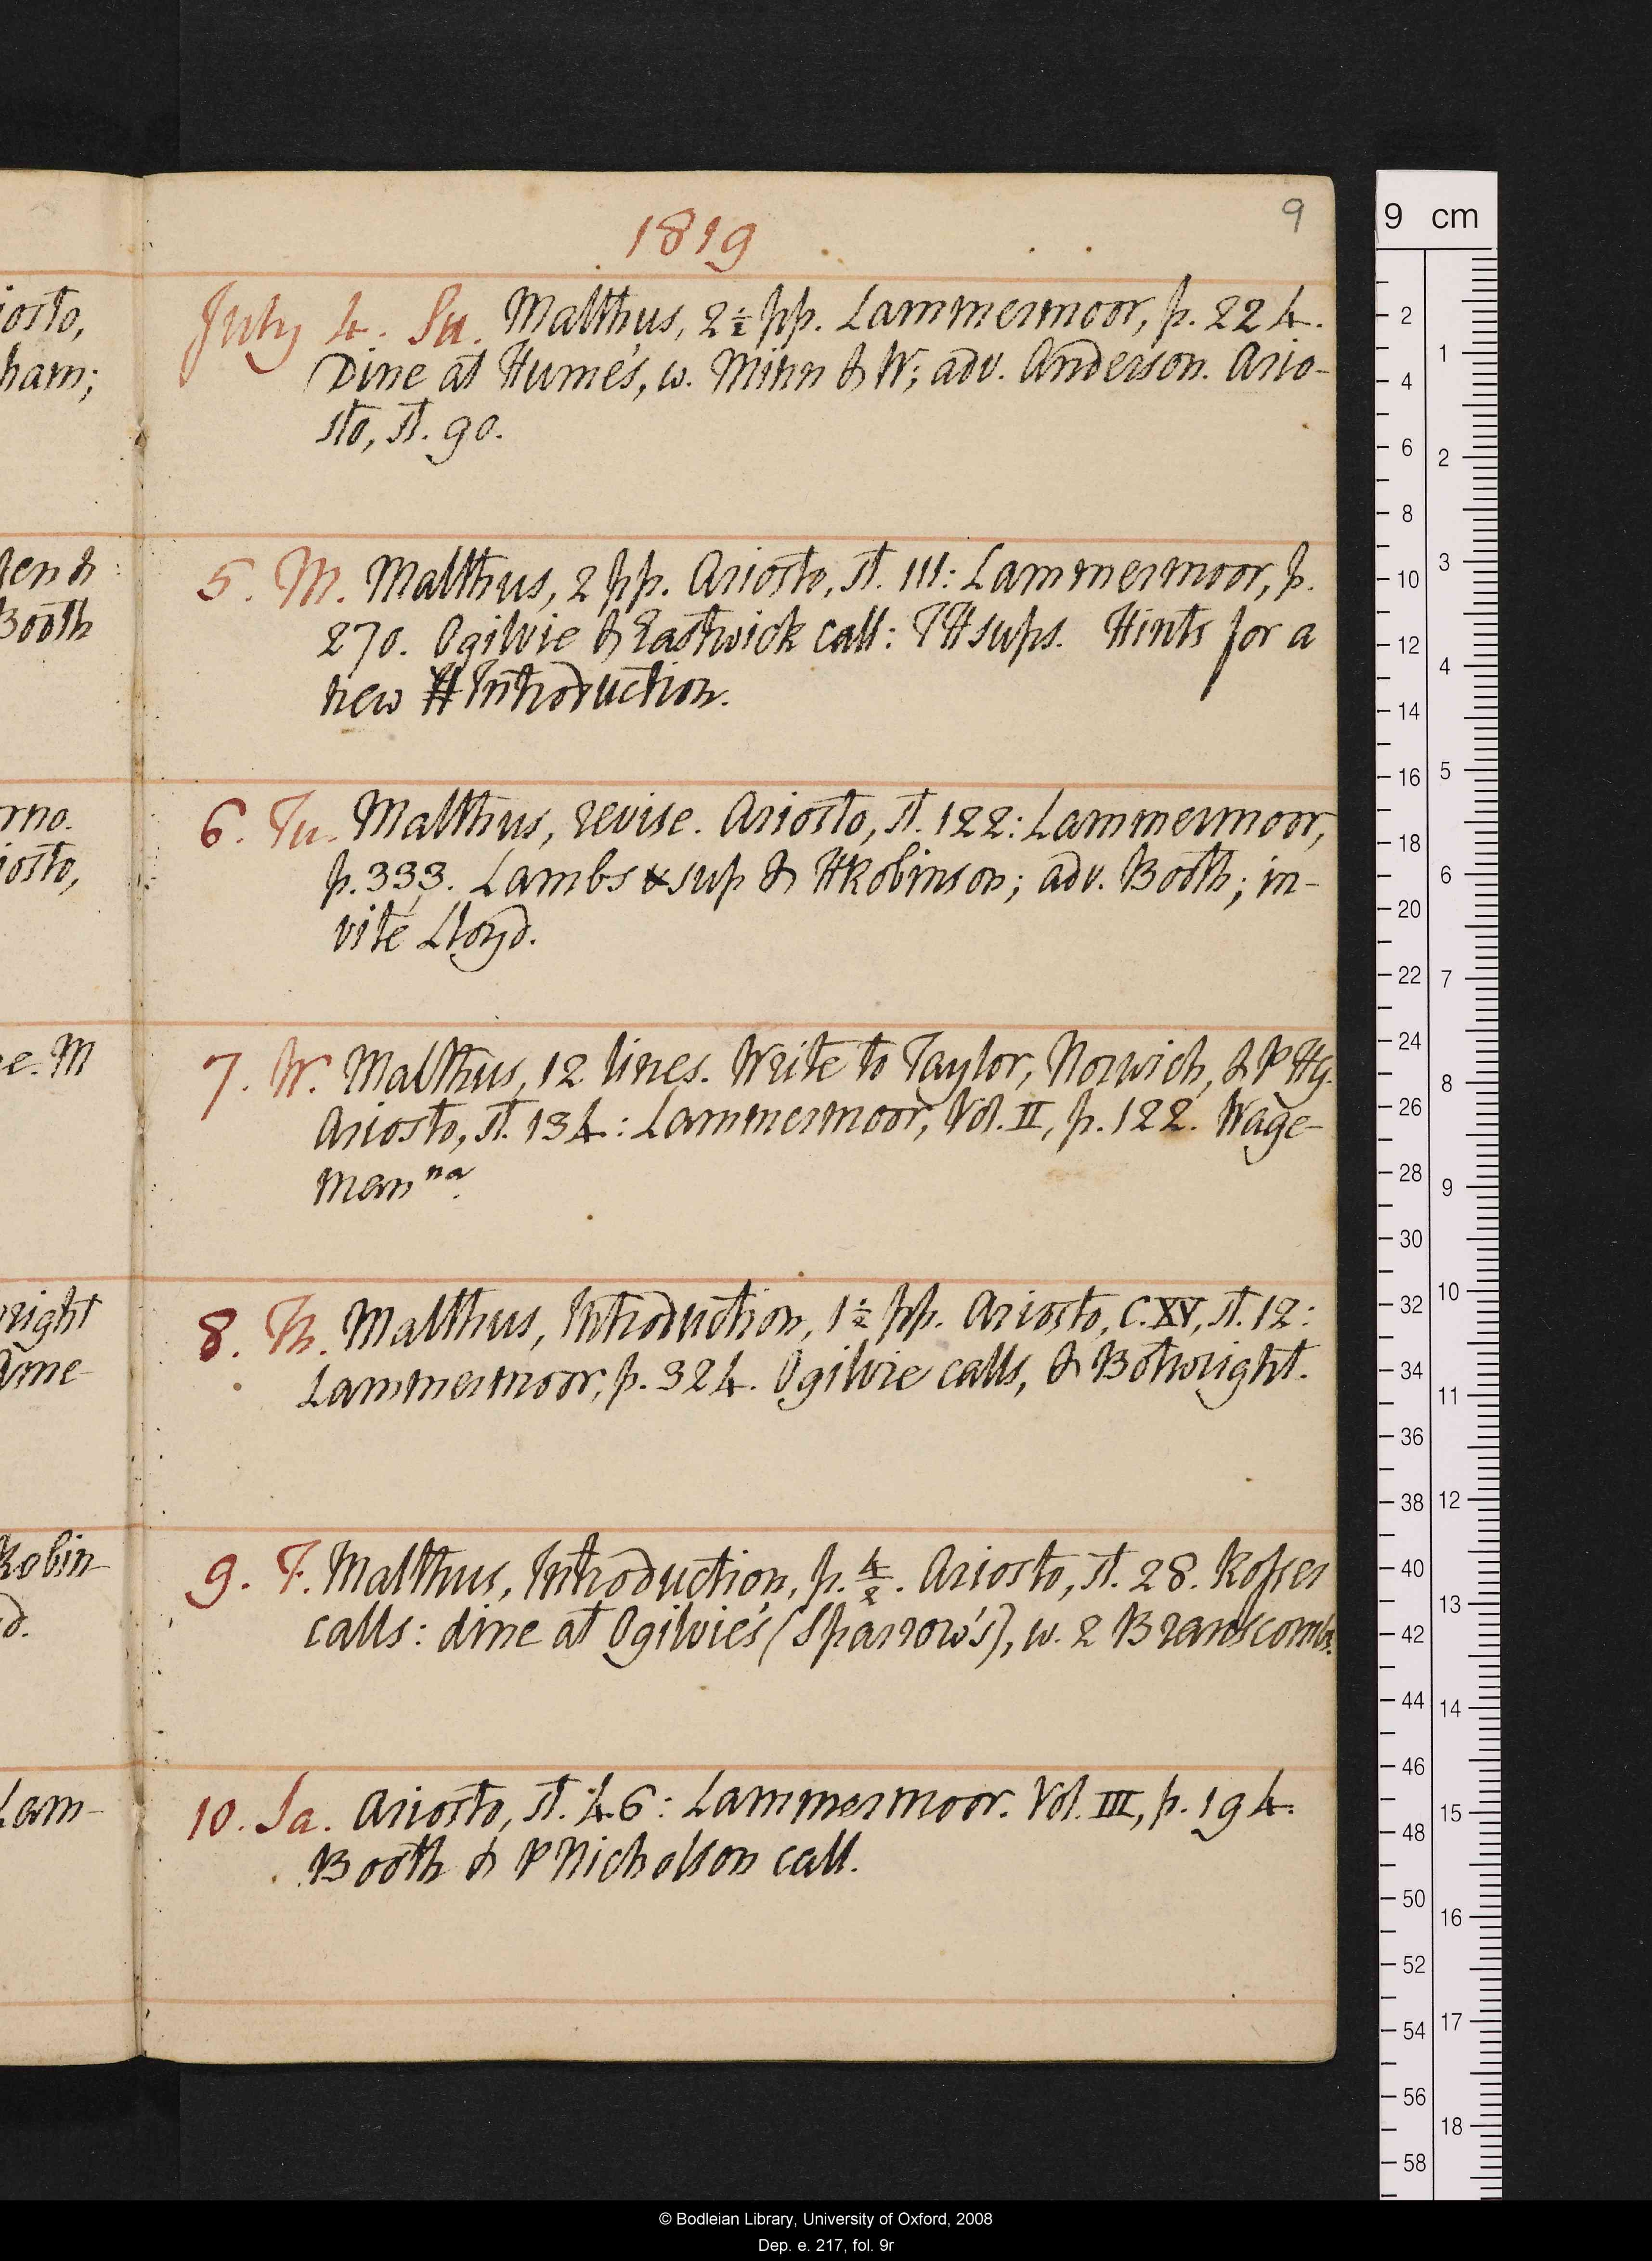 9
1819
July 4. Su. Malthus, 2½ pp. Lammermoor, p. 224.
Dine at Hume's, w. Minn & W; adv. Anderson. Ario-
sto, st. 90.
5. M. Malthus, 2 pp. Ariosto, st. 111: Lammermoor, p.
270. Ogilvie & Eastwick call: TH sups. Hints for a
new Introduction.
6. Tu. Malthus, revise. Ariosto, st. 122: Lammermoor,
p. 333. Lambs sup & HRobinson; adv. Booth; in-
vite Lloyd.
7. W. Malthus, 12 lines. Write to Taylor, Norwich, & PHg.
Ariosto, st. 134: Lammermoor, Vol. II, p. 122. Wage-
man na.
8. Th. Malthus, Introduction, 1½ pp. Ariosto, C. XV, st. 12:
Lammermoor, p. 324. Ogilvie calls, & Botwright.
9. F. Malthus, Introduction, p. 4/2. Ariosto, st. 28. Rosser
calls: dine at Ogilvie's (Sparrow's), w. 2 Branscombs.
10. Sa. Ariosto, st. 46: Lammermoor. Vol. III, p. 194.
Booth & PNicholson call.
iosto,
ham;
den &
Booth
rno.
iosto,
e. M
right
ame-
Robin-
d.
Lam-
9 cm
2 4 6 8 10 12 14 16 18 20 22 24 26 28 30 32 34 36 38 40 42 44 46 48 50 52 54 56 58
1 2 3 4 5 6 7 8 9 10 11 12 13 14 15 16 17 18
© Bodleian Library, University of Oxford, 2008
Dep. e. 217, fol. 9r